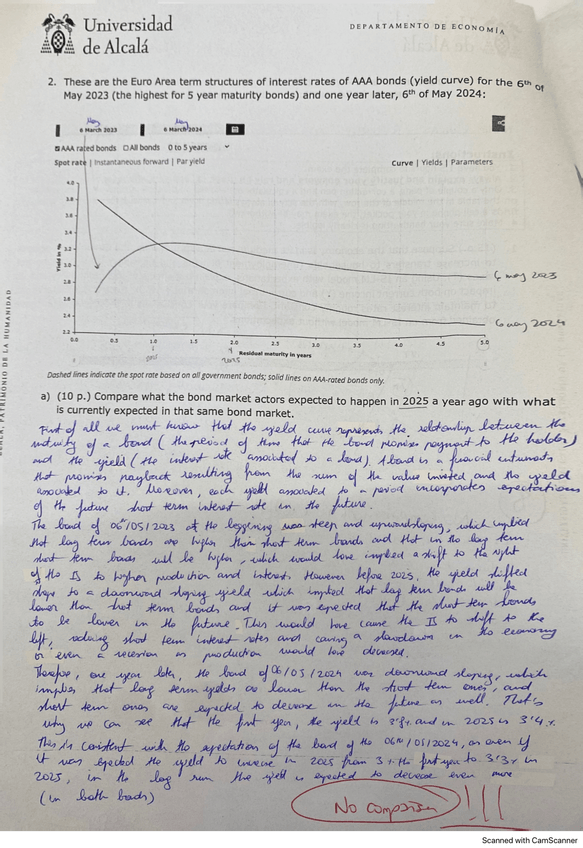 Universidad
de Alcalá
DEPARTAMENTO DE ECONOMÍA
2. These are the Euro Area term structures of interest rates of AAA bonds (yield curve) for the 6th of
May 2023 (the highest for 5 year maturity bonds) and one year later, 6th of May 2024:
May May
6 March 2023 6 March 2024
AAA rated bonds All bonds 0 to 5 years
Spot rate | Instantaneous forward | Par yield Curve | Yields | Parameters
4.0
3.8
3.6
3.4
3.2
3.0
2.8
2.6
2.4
2.2
Yield in %
6 may 2023
6 may 2024
0.0 0.5 1.0 1.5 2.0 2.5 3.0 3.5 4.0 4.5 5.0
2025
Residual maturity in years
Dashed lines indicate the spot rate based on all government bonds; solid lines on AAA-rated bonds only.
PATRIMONIO DE LA HUMANIDAD
a) (10 p.) Compare what the bond market actors expected to happen in 2025 a year ago with what
is currently expected in that same bond market.
First of all we must know that the yield curve represents the relationship between the
maturity of a bond (the period of time that the bond promises payment to the holder)
and the yield (the interest rate associated to a bond). A bond is a financial
that promises payback resulting from the sum of the value invested and the yield
associated to it. Moreover, each yield associated to a period incorporates expectations
of the future short term interest rate in the future.
The bond of 06/05/2023 at the beginning was steep and upward sloping, which implied
that long term bonds are higher than short term bonds and that in the long term
short term bonds will be higher, which would have implied a shift to the right
of the IS to higher production and interest. However before 2025, the yield shifted
to a downward sloping yield which implied that long term bonds will be
lower than short term bonds and it was expected that the short term bonds
to be lower in the future. This would have cause the IS to shift to the
left, reducing short term interest rates and causing a slowdown in the economy
or even a recession as production would have decreased.
Therefore, one year later, the bond of 06/05/2024 was downward sloping, which
implies that long term yields are lower than the short term ones, and
short term ones are expected to decrease in the future as well. That's
why we can see that the first year, the yield is 3'8% and in 2025 is 3'4%.
This is consistent with the expectation of the bond of the 06th/05/2024, as even if
it was expected the yield to increase in 2025 from 3% the first year to 3'3% in
2025, in the long run the yield is expected to decrease even more
(in both bonds)
No comparison!!!
Scanned with CamScanner